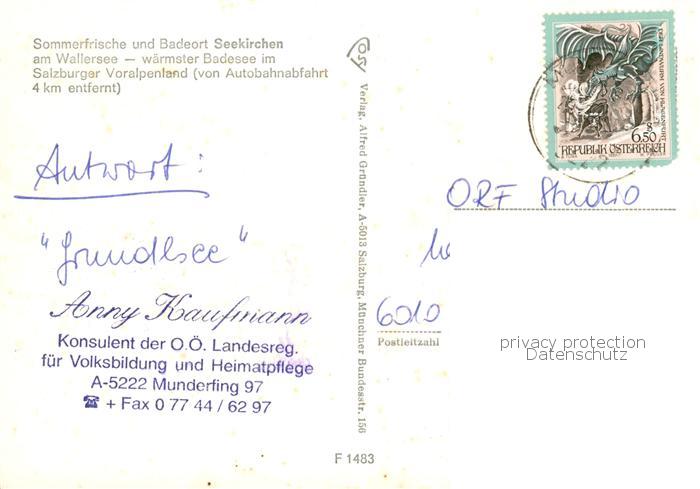 Sommerfrische und Badeort Seekirchen
am Wallersee — wärmster Badesee im
Salzburger Voralpenland (von Autobahnabfahrt
4 km entfernt)
Antwort:
"Grundlsee"
Anny Kaufmann
Konsulent der O.Ö. Landesreg.
für Volksbildung und Heimatpflege
A-5222 Munderfing 97
☎ + Fax 0 77 44 / 62 97
Verlag, Alfred Gründler, A-5013 Salzburg, Münchner Bundesstr. 156
F 1483
DER LINDWURM VON KLAGENFURT
S 6.50
REPUBLIK ÖSTERREICH
ORF Studio
6010
Postleitzahl
privacy protection
Datenschutz